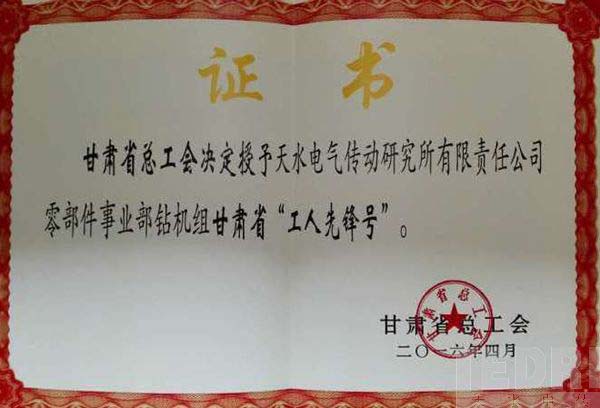 证书
甘肃省总工会决定授予天水电气传动研究所有限责任公司
零部件事业部钻机组甘肃省“工人先锋号”。
甘肃省总工会
甘肃省总工会
二〇一六年四月